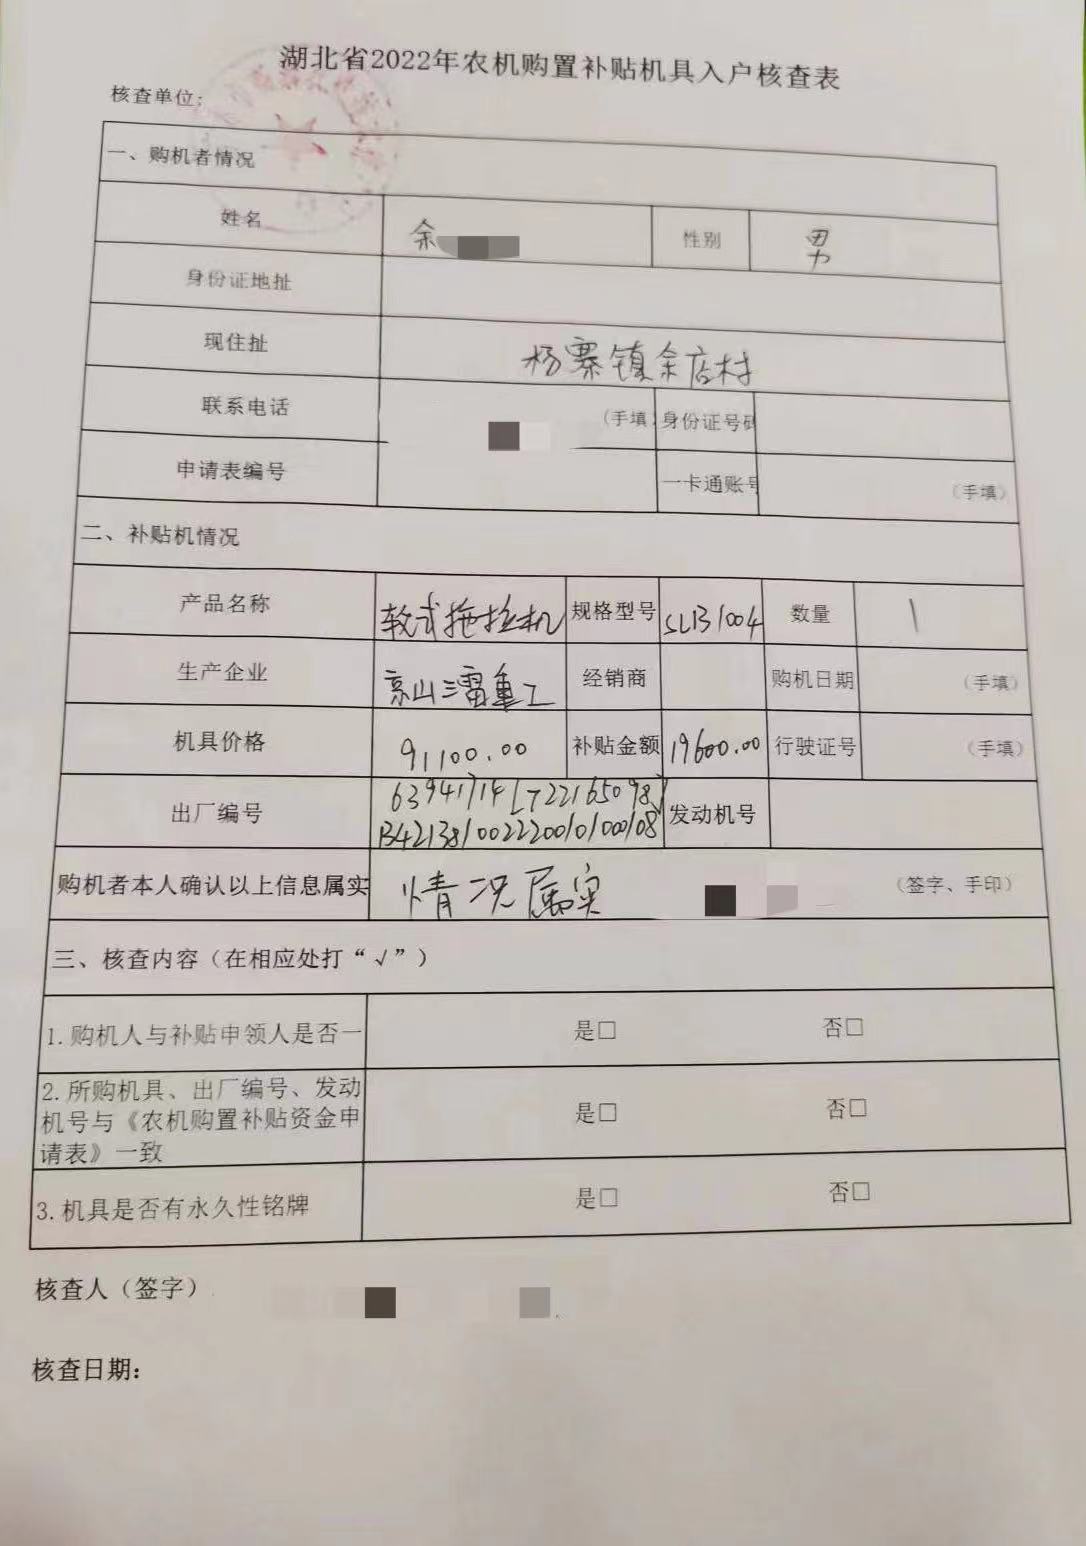 湖北省2022年农机购置补贴机具入户核查表
核查单位:
一、购机者情况
姓名 余 性别 男
身份证地址
现住址 杨寨镇余店村
联系电话 (手填 身份证号码
申请表编号 一卡通账号 (手填)
二、补贴机情况
产品名称 轮式拖拉机 规格型号 SLB1004 数量 1
生产企业 京山三雷重工 经销商 购机日期 (手填)
机具价格 91100.00 补贴金额 19600.00 行驶证号 (手填)
出厂编号 63941714[T22165098] 发动机号
B4213810022200101000108
购机者本人确认以上信息属实 情况属实 (签字、手印)
三、核查内容(在相应处打“√”)
1.购机人与补贴申领人是否一 是□ 否□
2.所购机具、出厂编号、发动
机号与《农机购置补贴资金申 是□ 否□
请表》一致
3.机具是否有永久性铭牌 是□ 否□
核查人(签字)
核查日期: